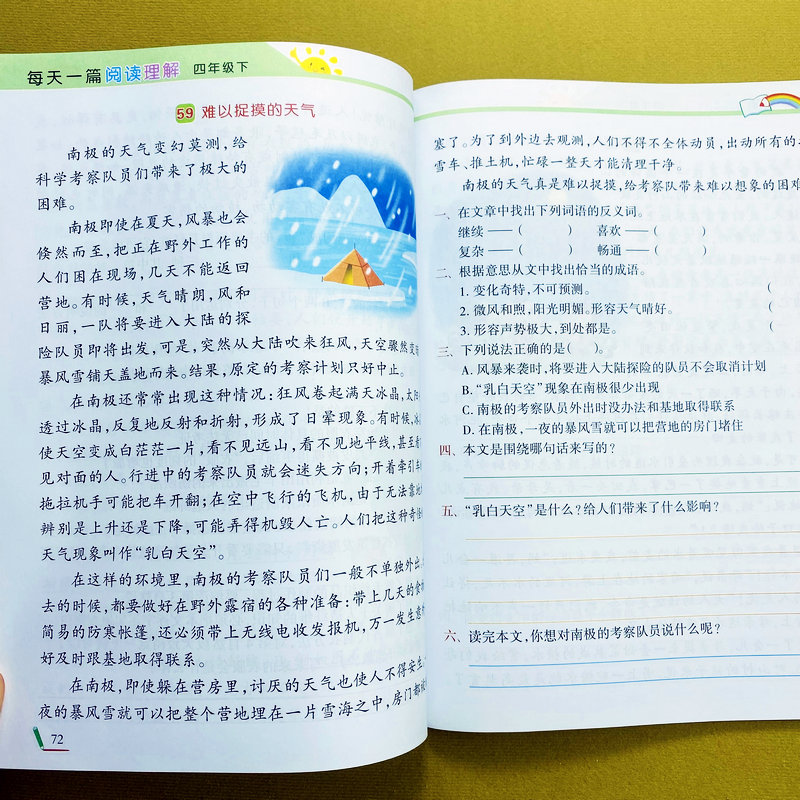 每天一篇 阅读理解 四年级下
59 难以捉摸的天气
南极的天气变幻莫测,给
科学考察队员们带来了极大的
困难。
南极即使在夏天,风暴也会
倏然而至,把正在野外工作的
人们困在现场,几天不能返回
营地。有时候,天气晴朗,风和
日丽,一队将要进入大陆的探
险队员即将出发,可是,突然从大陆吹来狂风,天空骤然
暴风雪铺天盖地而来。结果,原定的考察计划只好中止。
在南极还常常出现这种情况:狂风卷起满天冰晶,太阳
透过冰晶,反复地反射和折射,形成了日晕现象。有时候,冰
使天空变成白茫茫一片,看不见远山,看不见地平线,甚至看
见对面的人。行进中的考察队员就会迷失方向;开着牵引车
拖拉机手可能把车开翻;在空中飞行的飞机,由于无法靠地
辨别是上升还是下降,可能弄得机毁人亡。人们把这种奇怪
天气现象叫作“乳白天空”。
在这样的环境里,南极的考察队员们一般不单独外出。
去的时候,都要做好在野外露宿的各种准备:带上几天的食物
简易的防寒帐篷,还必须带上无线电收发报机,万一发生意
好及时跟基地取得联系。
在南极,即使躲在营房里,讨厌的天气也使人不得安生。
夜的暴风雪就可以把整个营地埋在一片雪海之中,房门都被
72
塞了。为了到外边去观测,人们不得不全体动员,出动所有的
雪车、推土机,忙碌一整天才能清理干净。
南极的天气真是难以捉摸,给考察队带来难以想象的困难
一、在文章中找出下列词语的反义词。
继续——( ) 喜欢——( )
复杂——( ) 畅通——( )
二、根据意思从文中找出恰当的成语。
1. 变化奇特,不可预测。 (
2. 微风和煦,阳光明媚。形容天气晴好。 (
3. 形容声势极大,到处都是。 (
三、下列说法正确的是( )。
A. 风暴来袭时,将要进入大陆探险的队员不会取消计划
B. “乳白天空”现象在南极很少出现
C. 南极的考察队员外出时没办法和基地取得联系
D. 在南极,一夜的暴风雪就可以把营地的房门堵住
四、本文是围绕哪句话来写的?
五、“乳白天空”是什么?给人们带来了什么影响?
六、读完本文,你想对南极的考察队员说什么呢?